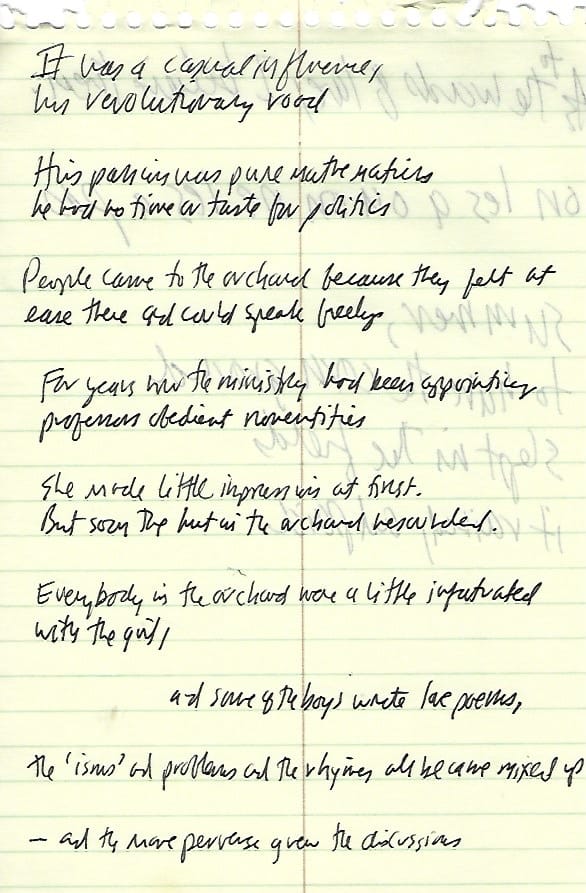 It was a casual influence,
his revolutionary road
His passion was pure mathematics
he had no time or taste for politics
People came to the orchard because they felt at
ease there and could speak freely
For years now the ministry had been appointing
professors obedient nonentities
She made little impression at first.
But soon the hut in the orchard resounded.
Everybody in the orchard were a little infatuated
with the girl,
and some of the boys wrote love poems,
the 'isms' and problems and the rhymes all became mixed up
— and the more perverse grew the discussions